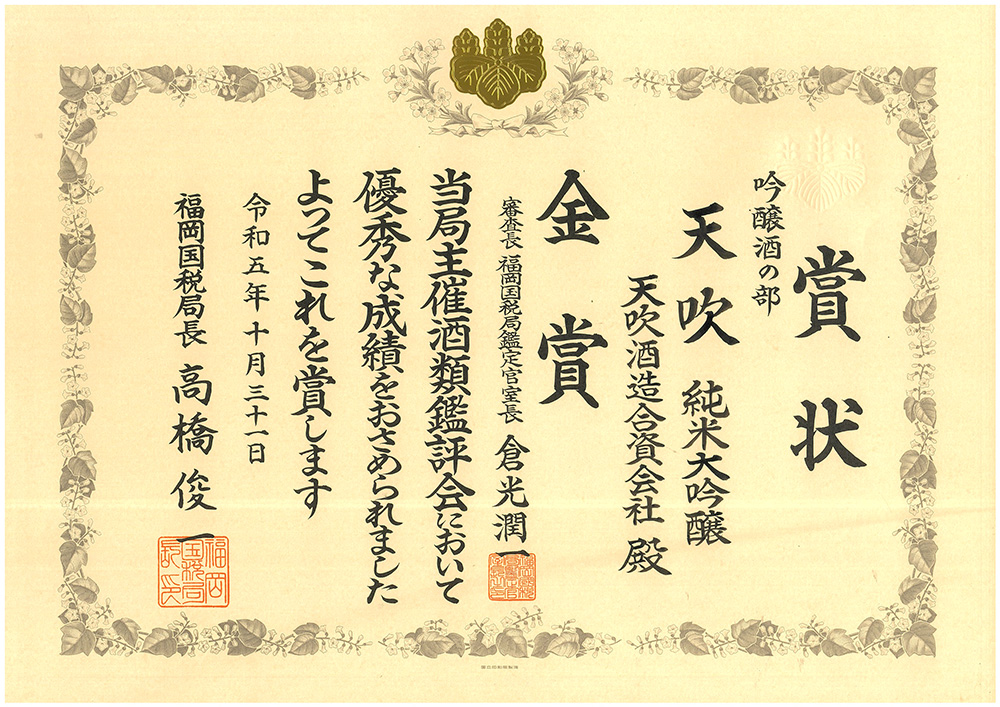 賞状
吟醸酒の部
天吹 純米大吟醸
天吹酒造合資会社 殿
金賞
審査長 福岡国税局鑑定官室長 倉光潤一
当局主催酒類鑑評会において
優秀な成績をおさめられました
よってこれを賞します
令和五年十月三十一日
福岡国税局長 高橋俊一
福岡
国税局
長印